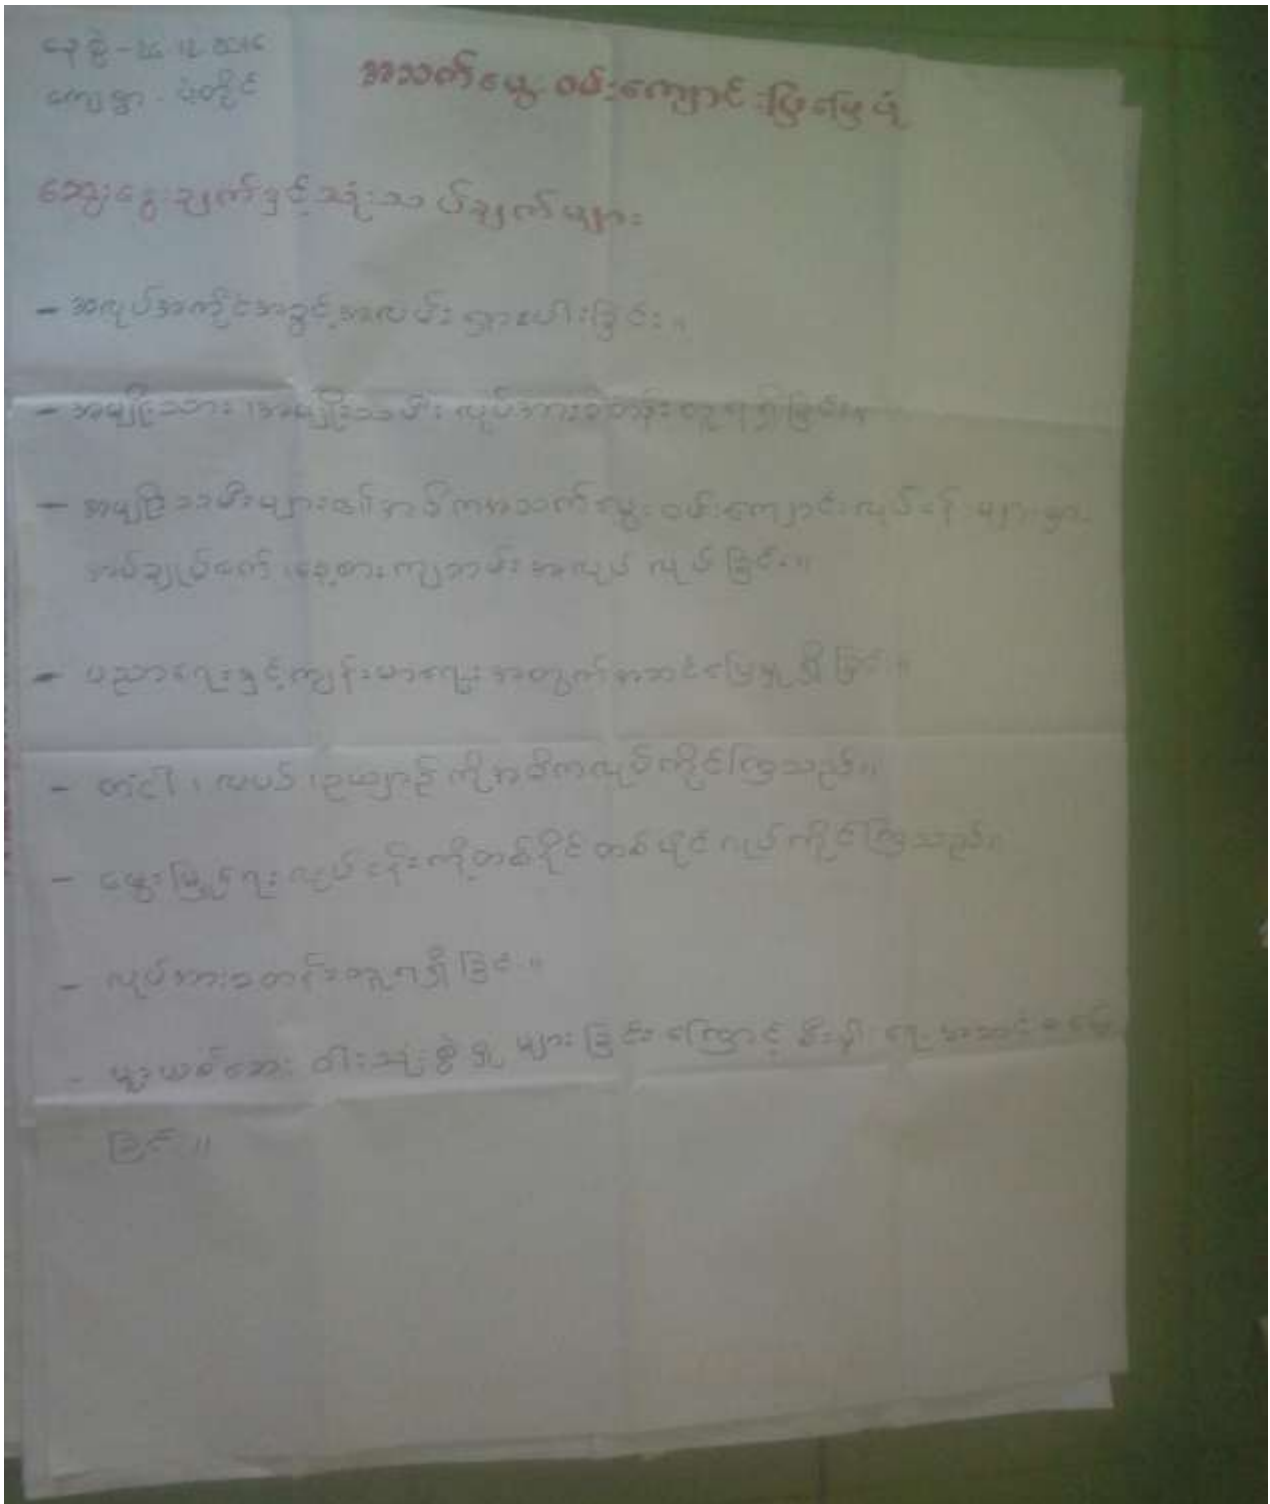 နေ့စွဲ - ၁၄.၁၂.၁၀၁၄
ကျေးရွာ - ပံတိုင်
အသက်မွေးဝမ်းကျောင်းပြုမြေပုံ
ဆွေးနွေးချက်နှင့်သုံးသပ်ချက်များ
- အလုပ်အကိုင်အခွင့်အလမ်းရှားပါးခြင်း။
- အမျိုးသား၊ အမျိုးသမီး လုပ်အားခတန်းတူရရှိခြင်း။
- အမျိုးသမီးများ၏အဓိကအသက်မွေးဝမ်းကျောင်းလုပ်ငန်းများမှာ
အပ်ချုပ်စက်၊ နေ့စားကျဘမ်းအလုပ် လုပ်ခြင်း။
- ပညာရေးနှင့်ကျန်းမာရေးအတွက်အဆင်ပြေမှုရှိခြင်း။
- တံငါ၊ လယ်၊ ဥယျာဉ်ကိုအဓိကလုပ်ကိုင်ကြသည်။
- မွေးမြူရေးလုပ်ငန်းကိုတစ်ပိုင်တစ်ပိုင်လုပ်ကိုင်ကြသည်။
- လုပ်အားခတန်းတူရရှိခြင်း။
- မူးယစ်ဆေးဝါးသုံးစွဲမှု များခြင်းကြောင့် စီးပွါးရေးအဆင်မပြေ
ခြင်း။